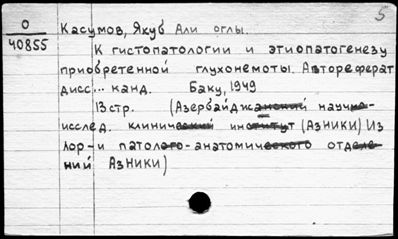 5
О
40855
Касумов, Якуб Али оглы.
К гистопатологии и этиопатогенезу
приобретенной глухонемоты. Автореферат
дисс... канд. Баку, 1949
13 стр. (Азербайджанский научно-
исслед. клинический институт (АзНИКИ) Из
Лор- и патолого-анатомического отделе-
ний АзНИКИ)